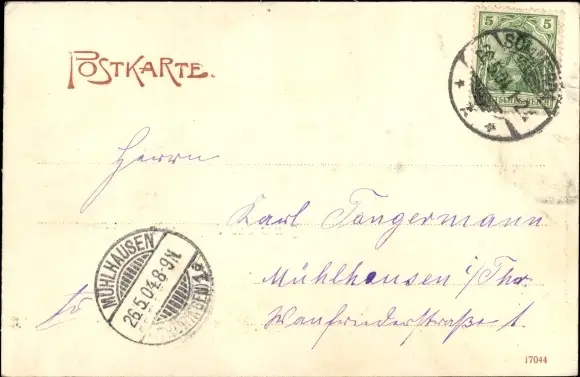 POSTKARTE.
5 5
DEUTSCHES REICH
Herrn
Karl Tangermann
Mühlhausen i/Thr.
Wanfriederstraße 1.
MÜHLHAUSEN
26.5.04.8-9N
17044